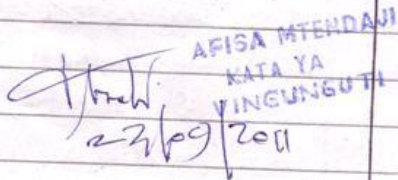 AFISA MTENDAJI
KATA YA
VINGUNGUTI
23/09/2011